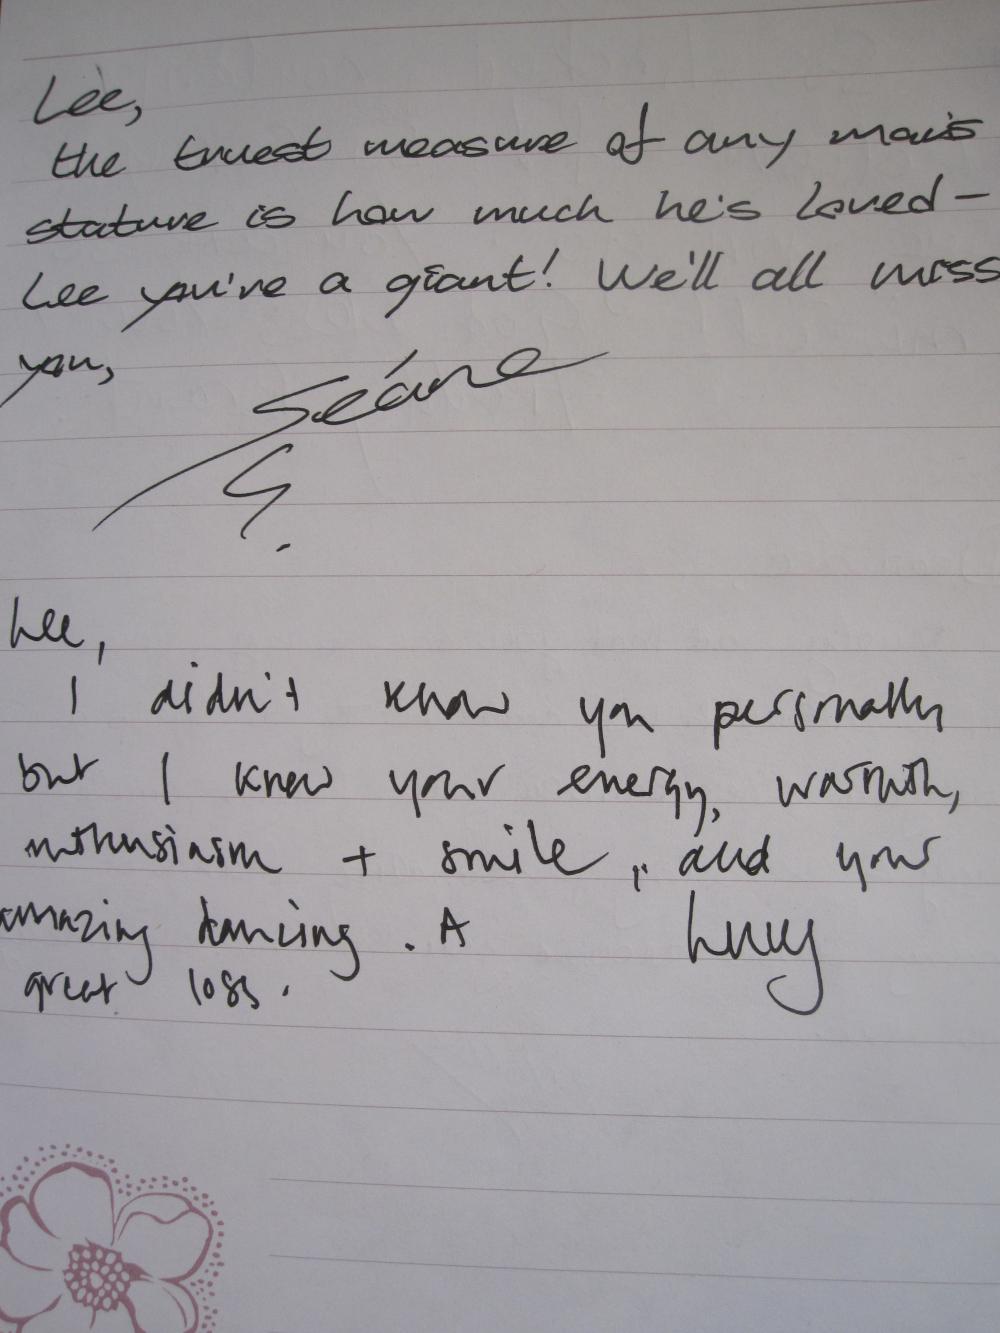 Lee,
the truest measure of any man's
stature is how much he's loved –
Lee you're a giant! We'll all miss
you,
Lee,
I didn't know you personally
but I knew your energy, warmth,
enthusiasm + smile, and your
amazing dancing. A
great loss.
Lucy